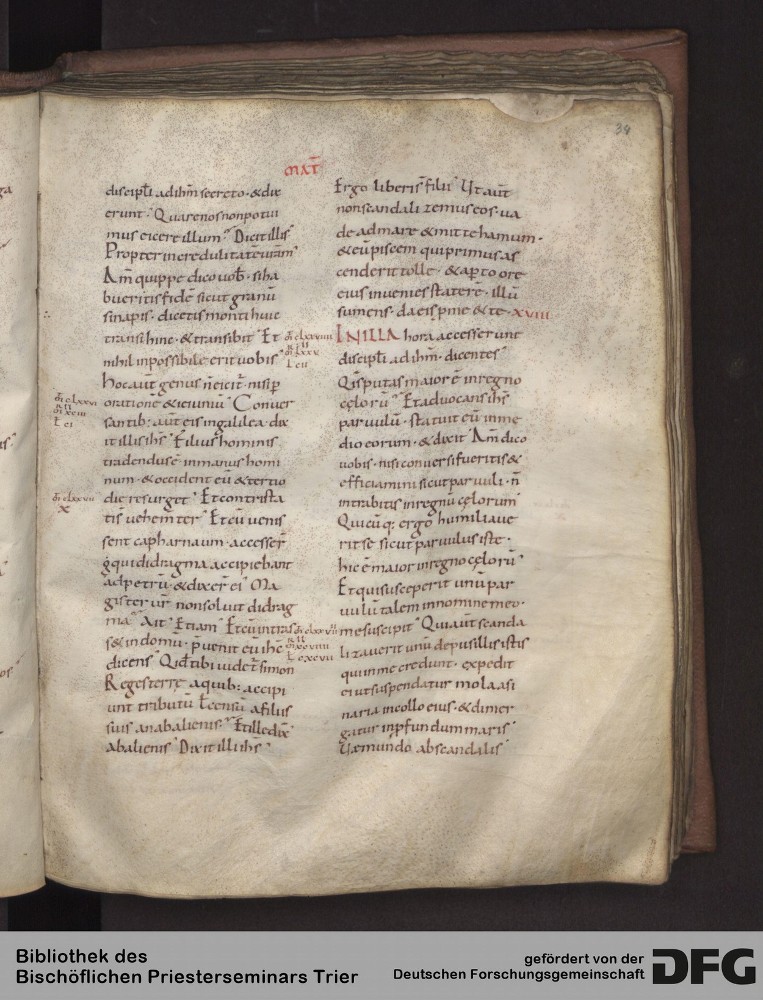 34
MAT̄
discipl̄i adihm̄ secreto · & dix
erunt · Quare nos non potui
mus eicere illum · Dicit illis
Propter incredulitatē urām
Am̄ quippe dico uob̄ · si ha
bueritis fidē sicut granū
sinapis · dicetis monti huic
transi hinc · & transibit · Et
nihil inpossibile erit uobis
hoc aūt genus n̄ eicit̄ nisi p̄
orationē & ieiuniū · Conuer
santib: aūt eis in galilea · dix
it illis ihs̄ · Filius hominis
tradendus ē in manus homi
num · & occident eū & tertio
die resurget · Et contrista
ti s̄ uehementer · Et cū uenis
sent capharnaum · accesser̄
qui didragma accipiebant
ad petrū · & dixer̄ ei · Ma
gister ur̄ non soluit didrag
ma · Ait · Etiam · Et cū intras
s& in domū · p̄uenit eū ihc̄
dicens · Qid tibi uidet̄ simon
Reges terrę a quib: accipi
unt tributū ł censū a filiis
suis an ab alienis · Et ille dix̄
ab alienis · Dixit illi ihs̄
Ergo liberi s̄ filii · Ut aūt
non scandalizemus eos · ua
de ad mare & mitte hamum ·
& eū piscem qui primus as
cenderit tolle · & ap̄to ore
eius inuenies staterē · illū
sumens · da eis p̄ me & te · XVIII
IN ILLA hora accesserunt
discipl̄i ad ihm̄ · dicentes
Qis putas maior ē in regno
cęlorū · Et aduocans ihs̄
paruulū · statuit eū in me
dio eorum · & dixit · Am̄ dico
uobis · nisi conuersi fueritis &
efficiamini sicut paruuli · n̄
intrabitis in regnū cęlorum
Quicūq; ergo humiliaue
rit se sicut paruulus iste ·
hic ē maior in regno cęlorū
Et qui susceperit unū par
uulū talem in nomine meo ·
me suscipit · Qui aūt scanda
lizauerit unū de pusillis istis
qui in me credunt · expedit
ei ut suspendatur mola asi
naria in collo eius · & dimer
gatur in p̄fundum maris
Uae mundo ab scandalis
Bibliothek des
Bischöflichen Priesterseminars Trier
gefördert von der
Deutschen Forschungsgemeinschaft
DFG